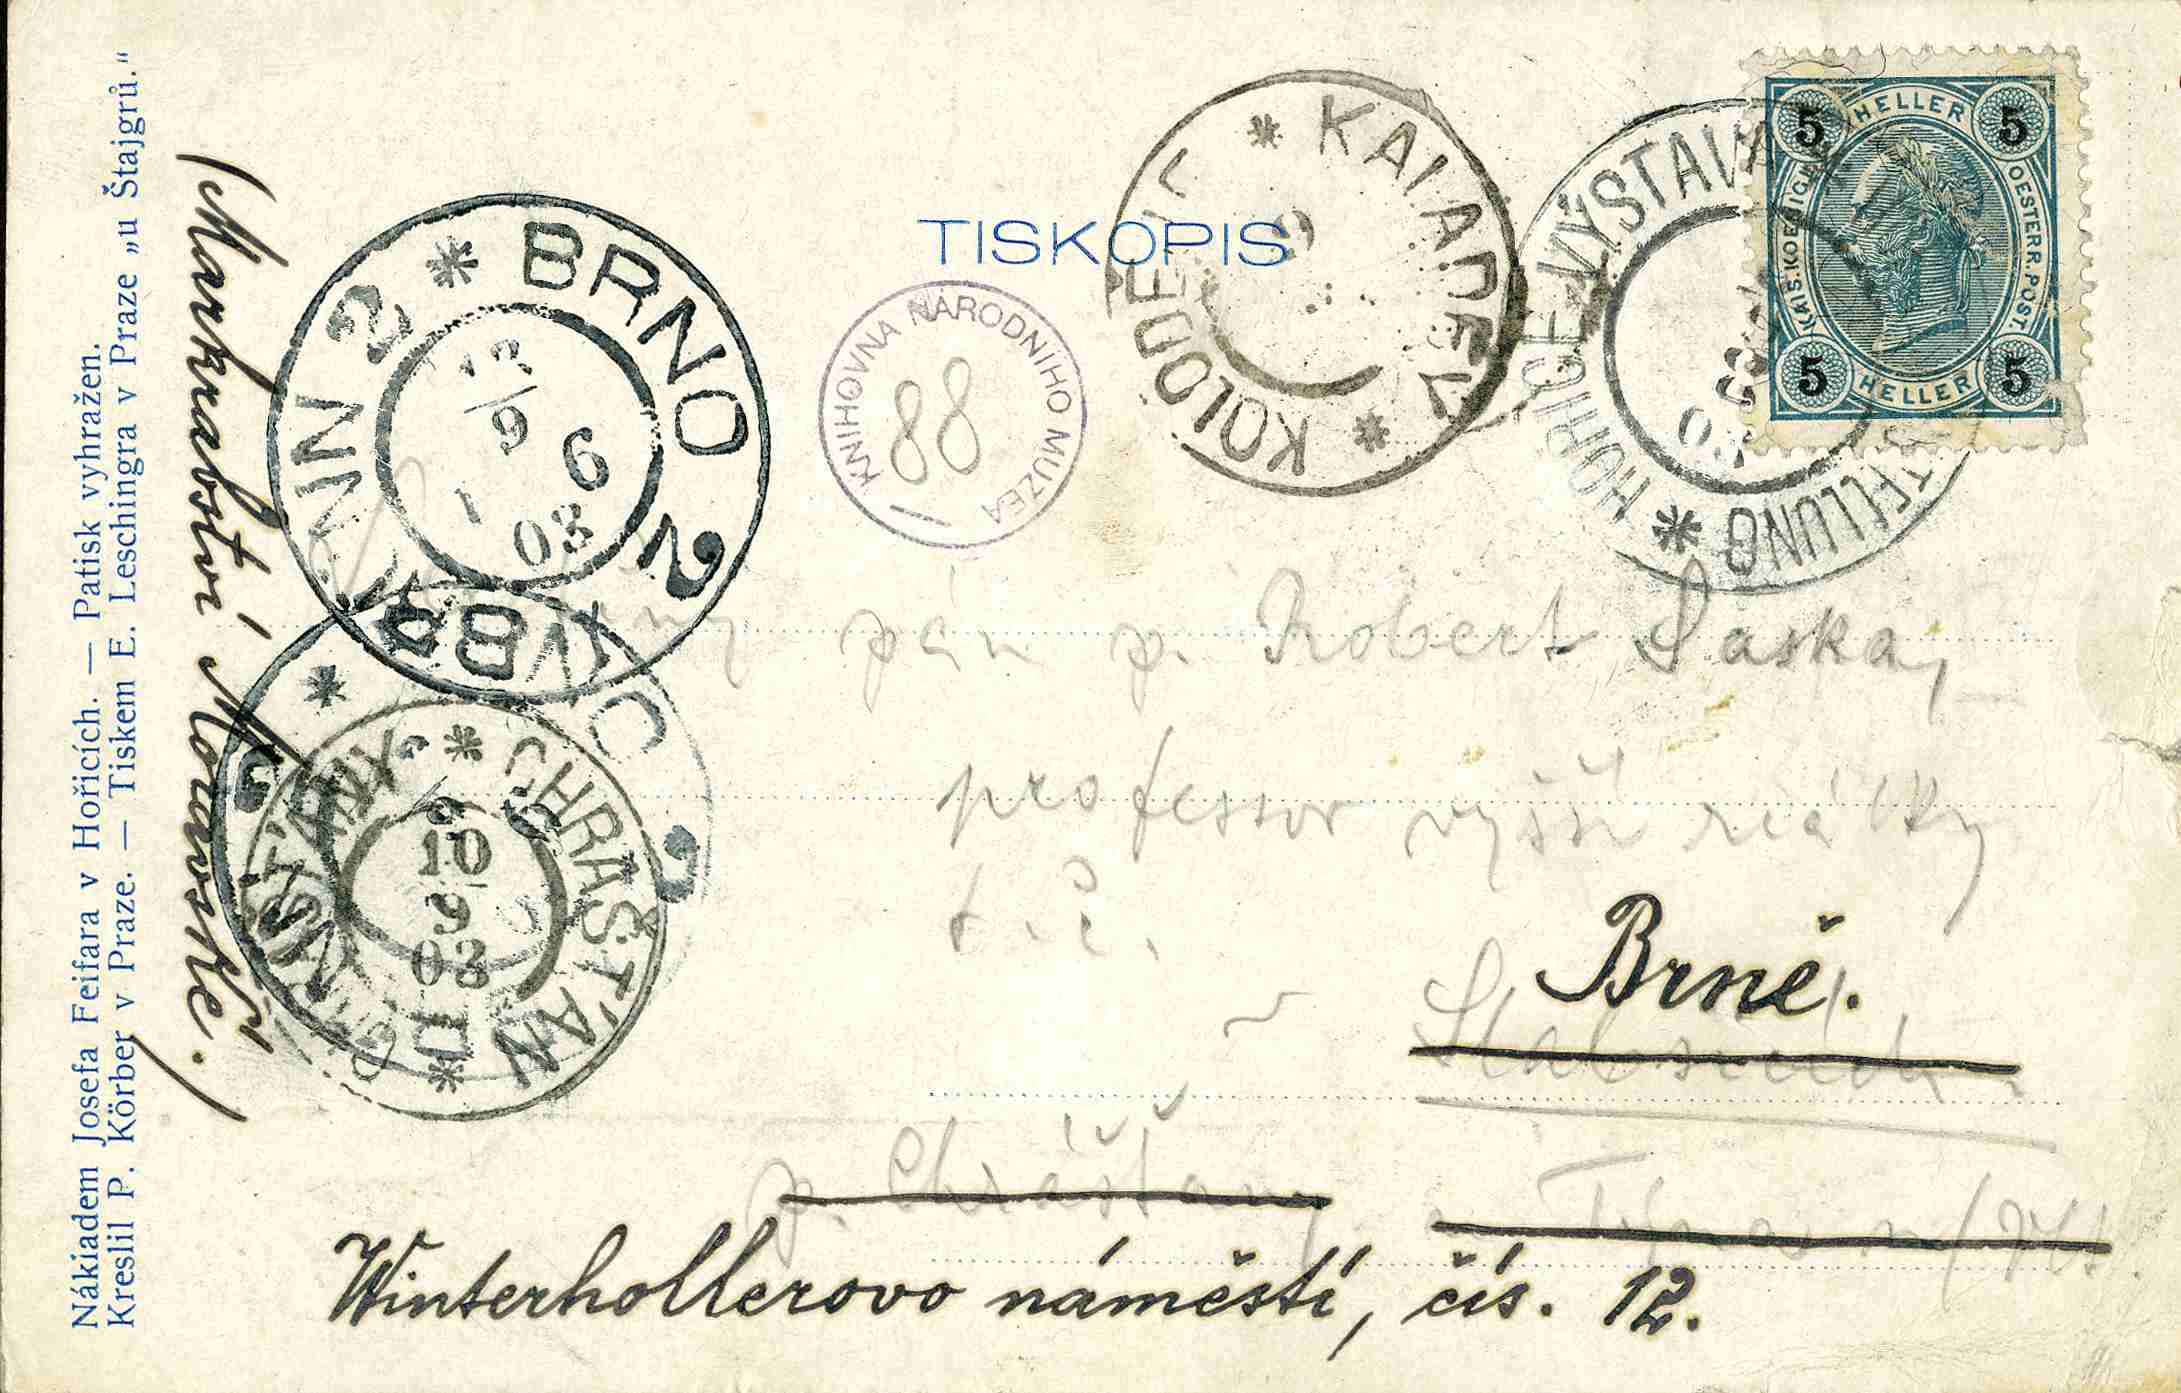 Nákladem Josefa Feifara v Hořicích. — Patisk vyhražen.
Kreslil P. Körber v Praze. — Tiskem E. Leschingra v Praze „u Štajgrů."
(Markrabství Moravské.)
TISKOPIS
BRNO 2 * BRÜNN 2 *
12/9 6
03
KNIHOVNA NÁRODNÍHO MUZEA
88
* KOLODĚJE
HOŘICE-VÝSTAVA *
5 HELLER 5
KAIS. KOENIGL. OESTERR. POST.
5 HELLER 5
* CHRÁŠT'AN *
10
9
03
pán p. Robert Saska,
professor vyšší reálky
t. č.
v
Brně.
p. Chrášťany
Winterhollerovo náměstí, čís. 12.